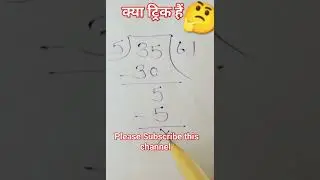 क्या ट्रिक हैं
5) 35 (61
-30
5
-5
Please Subscribe this
channel